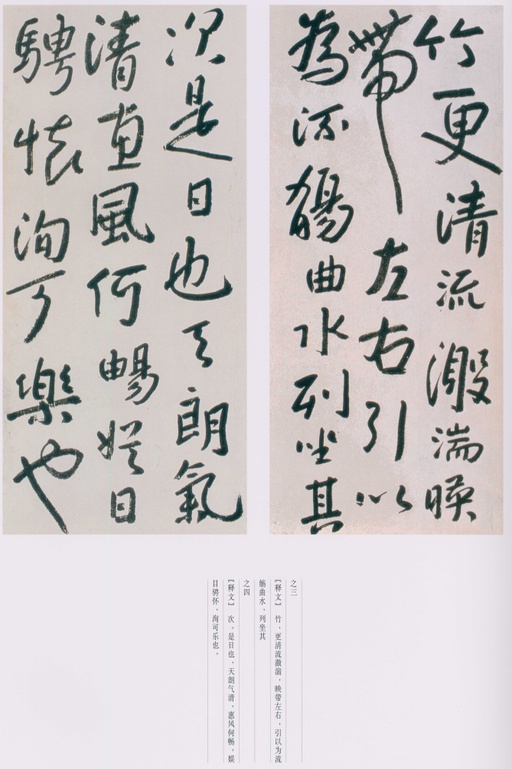 竹更清流激湍暎
帶左右引以
為流觴曲水列坐其
次是日也天朗氣
清惠風何暢娱目
騁懷洵可樂也
之三
【释文】 竹，更清流激湍，映带左右，引以为流
觞曲水，列坐其
之四
【释文】 次。是日也，天朗气清，惠风何畅，娱
目骋怀，洵可乐也。